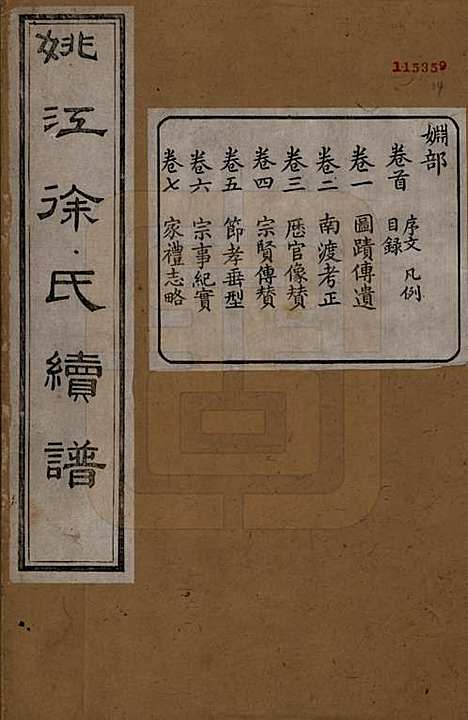 姚江徐氏續譜
115359
14
婣部
卷首 序文 凡例
目録
卷一 圖蹟傳遺
卷二 南渡考正
卷三 歷官像賛
卷四 宗賢傳賛
卷五 節孝垂型
卷六 宗事紀實
卷七 家禮志略